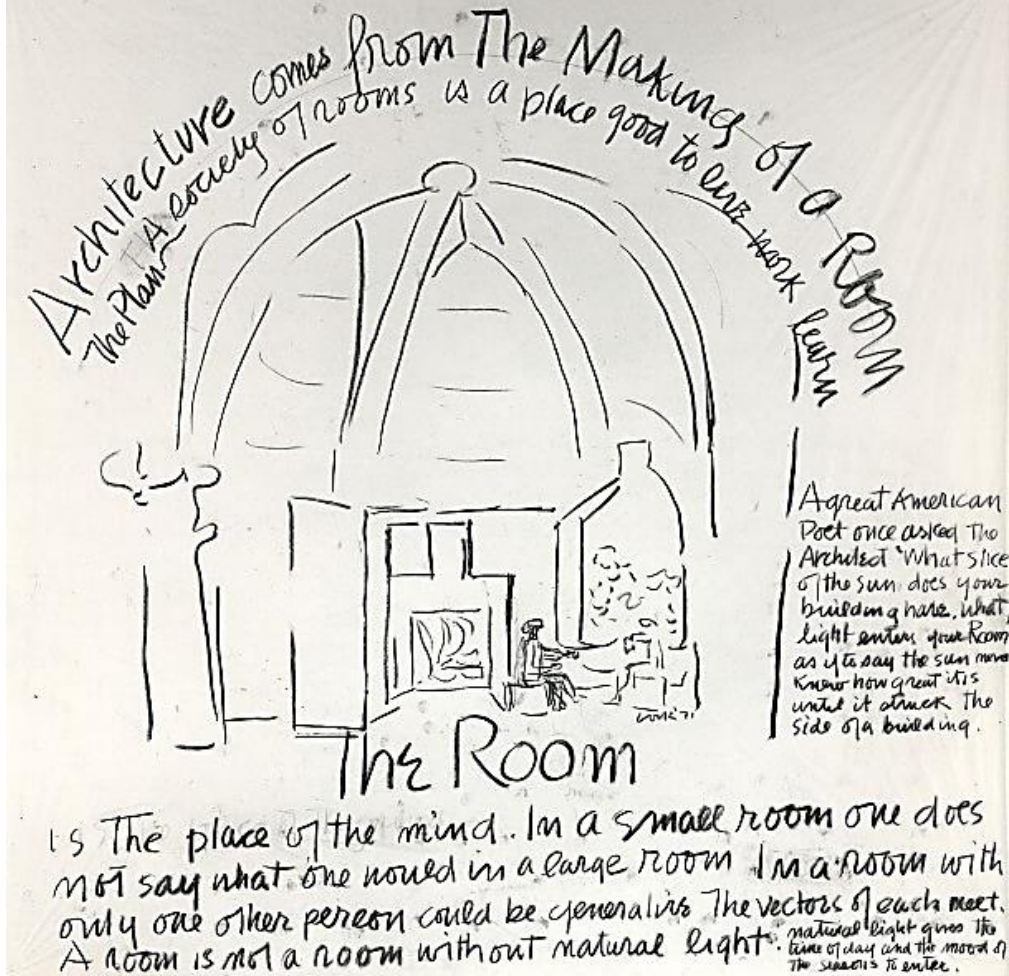 Architecture comes from The Making of a Room
The Plan A society of rooms is a place good to live work learn
A great American
Poet once asked the
Architect 'What slice
of the sun does your
building have. what
light enters your Room
as if to say the sun never
knew how great it is
until it struck the
side of a building.
Lou K '71
The Room
is The place of the mind. In a small room one does
not say what one would in a large room In a room with
only one other person could be generative The vectors of each meet.
A room is not a room without natural light.
natural light gives the
time of day and the mood of
the seasons to enter.